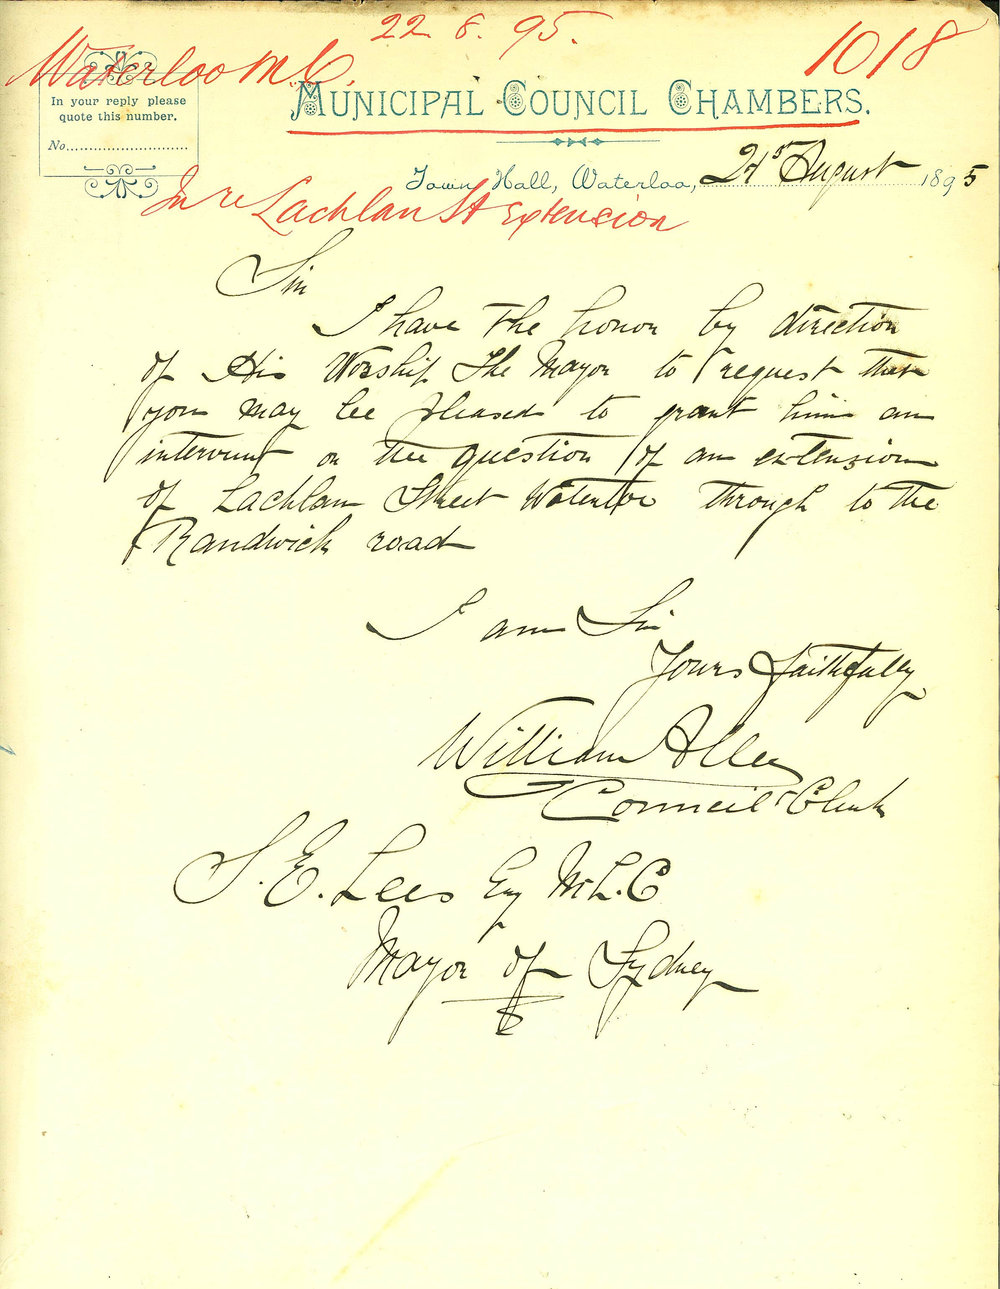 22. 8. 95.
1018
Waterloo M.C.
In your reply please
quote this number.
No.
MUNICIPAL COUNCIL CHAMBERS.
Town Hall, Waterloo, 21st August 1895
In re Lachlan St Extension
Sir
I have the honor by direction
of His Worship The Mayor to request that
you may be pleased to grant him an
interview on the question of an extension
of Lachlan Street Waterloo through to the
Randwick road
I am Sir
Yours faithfully
William Allen
Council Clerk
S. E. Lees Esq M.L.C
Mayor of Sydney